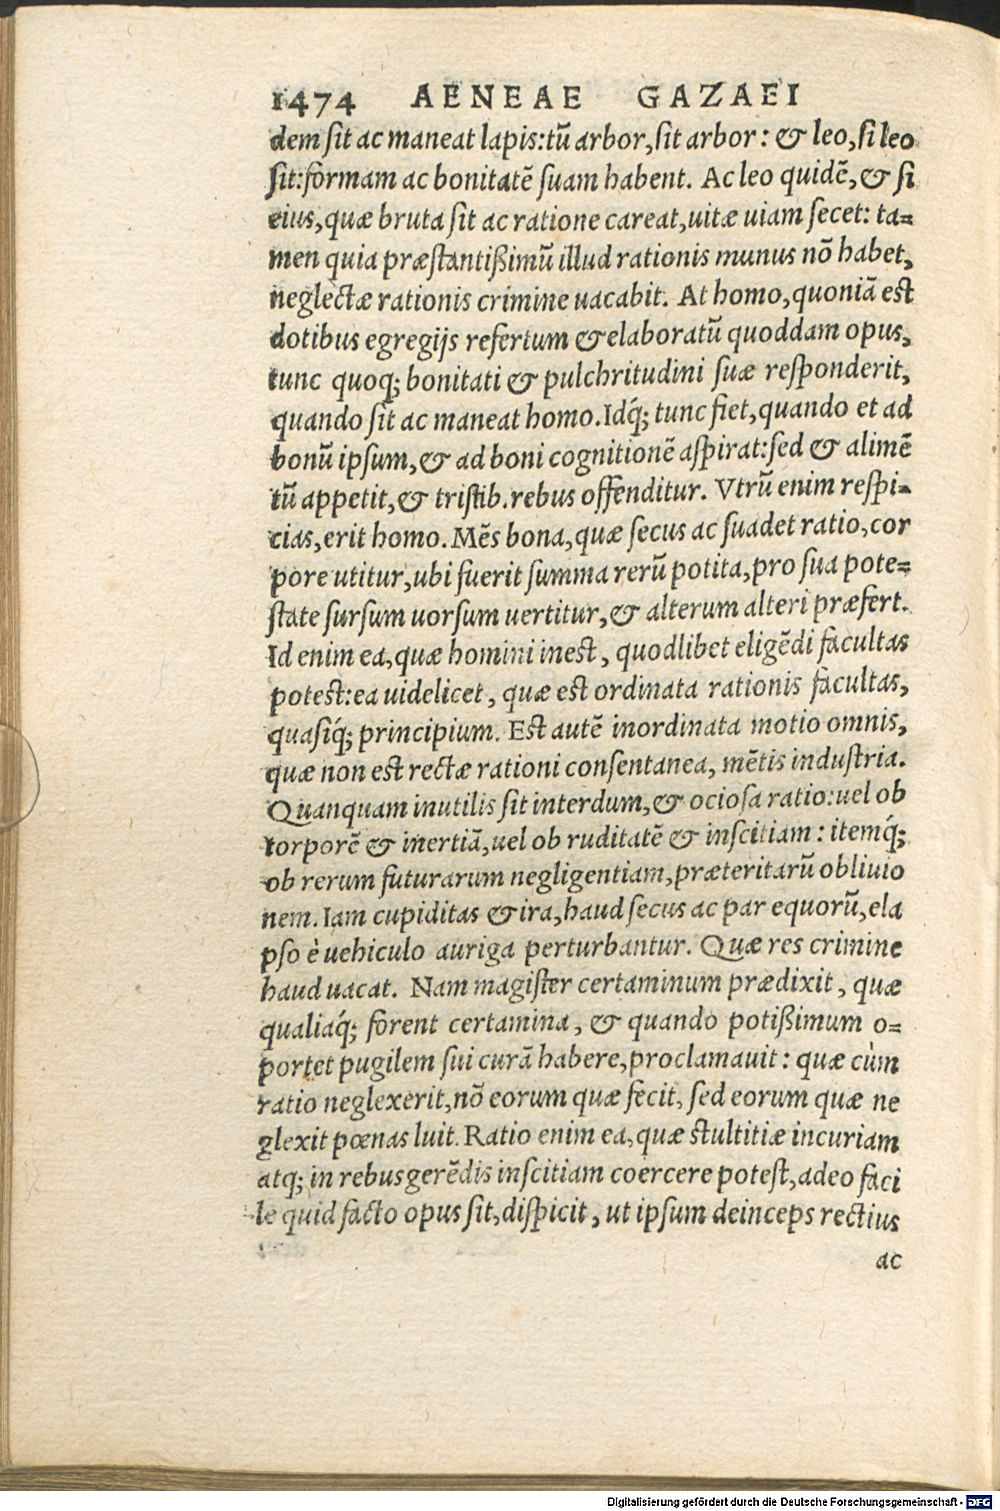 1474 AENEAE GAZAEI
dem sit ac maneat lapis: tũ arbor, sit arbor: & leo, si leo
sit: formam ac bonitatẽ suam habent. Ac leo quidẽ, & si
eius, quæ bruta sit ac ratione careat, uitæ uiam secet: ta=
men quia præstantißimũ illud rationis munus nõ habet,
neglectæ rationis crimine uacabit. At homo, quoniã est
dotibus egregijs refertum & elaboratũ quoddam opus,
tunc quoq; bonitati & pulchritudini suæ responderit,
quando sit ac maneat homo. Idq́; tunc fiet, quando et ad
bonũ ipsum, & ad boni cognitionẽ aspirat: sed & alimẽ
tũ appetit, & tristib. rebus offenditur. Vtrũ enim respi=
cias, erit homo. Mẽs bona, quæ secus ac suadet ratio, cor
pore utitur, ubi fuerit summa rerũ potita, pro sua pote=
state sursum uorsum uertitur, & alterum alteri præfert.
Id enim ea, quæ homini inest, quodlibet eligẽdi facultas
potest: ea uidelicet, quæ est ordinata rationis facultas,
quasiq́; principium. Est autẽ inordinata motio omnis,
quæ non est rectæ rationi consentanea, mẽtis industria.
Quanquam inutilis sit interdum, & ociosa ratio: uel ob
torporẽ & inertiã, uel ob ruditatẽ & inscitiam: itemq́;
ob rerum futurarum negligentiam, præteritarũ obliuio
nem. Iam cupiditas & ira, haud secus ac par equorũ, ela
pso è uehiculo auriga perturbantur. Quæ res crimine
haud uacat. Nam magister certaminum prædixit, quæ
qualiaq́; forent certamina, & quando potißimum o=
portet pugilem sui curã habere, proclamauit: quæ cùm
ratio neglexerit, nõ eorum quæ fecit, sed eorum quæ ne
glexit pœnas luit. Ratio enim ea, quæ stultitiæ incuriam
atq; in rebus gerẽdis inscitiam coercere potest, adeo faci
le quid facto opus sit, dispicit, ut ipsum deinceps rectius
ac
Digitalisierung gefördert durch die Deutsche Forschungsgemeinschaft - DFG